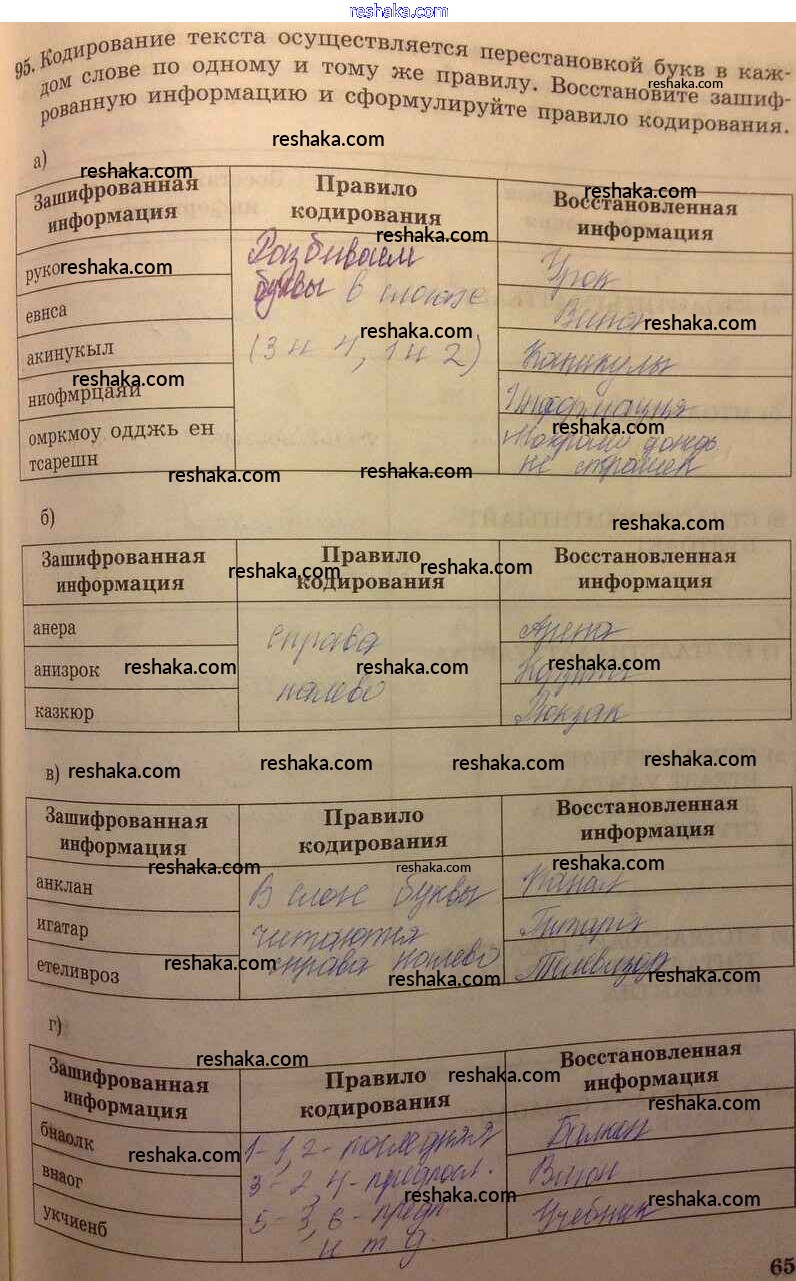 reshaka.com
95. Кодирование текста осуществляется перестановкой букв в каж-
дом слове по одному и тому же правилу. Восстановите зашиф-
рованную информацию и сформулируйте правило кодирования.
reshaka.com
reshaka.com
reshaka.com
а)
reshaka.com
reshaka.com
Зашифрованная информация
Правило кодирования
Восстановленная информация
reshaka.com
руко
reshaka.com
Разбиваем
буквы в слоге
(3 и 4, 1 и 2)
Урок
евнса
reshaka.com
reshaka.com
акинукыл
Каникулы
reshaka.com
ниофмрцаяи
Информация
reshaka.com
омркмоу одджь ен
тсарешн
Мокрому дождь
не страшен
reshaka.com
reshaka.com
reshaka.com
б)
Зашифрованная информация
Правило кодирования
Восстановленная информация
reshaka.com
reshaka.com
анера
справа
налево
Арена
анизрок
reshaka.com
reshaka.com
reshaka.com
казкюр
Рюкзак
в)
reshaka.com
reshaka.com
reshaka.com
reshaka.com
Зашифрованная информация
Правило кодирования
Восстановленная информация
reshaka.com
reshaka.com
reshaka.com
анклан
В слоге буквы
читаются
справа налево
игатар
Гитара
етеливроз
reshaka.com
reshaka.com
reshaka.com
г)
reshaka.com
reshaka.com
Зашифрованная информация
Правило кодирования
Восстановленная информация
reshaka.com
бнаолк
1-1, 2- последняя
3-2, 4- предпосл.
5-3, 6- пред
и т д.
Балкон
внаог
reshaka.com
Вагон
reshaka.com
reshaka.com
укчиенб
Учебник
reshaka.com
65